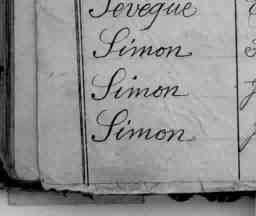 Sevegue
Simon
Simon
Simon